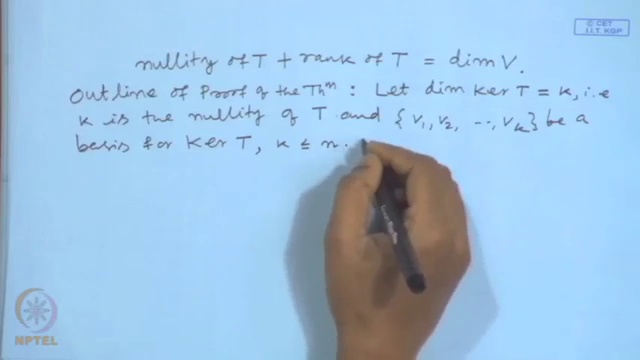 © CET
I.I.T. KGP
nullity of T + rank of T = dim V.
Outline of Proof of the Thm : Let dim Ker T = k, i.e
k is the nullity of T and { v1, v2, ..., vk } be a
basis for Ker T, k ≤ n.
NPTEL